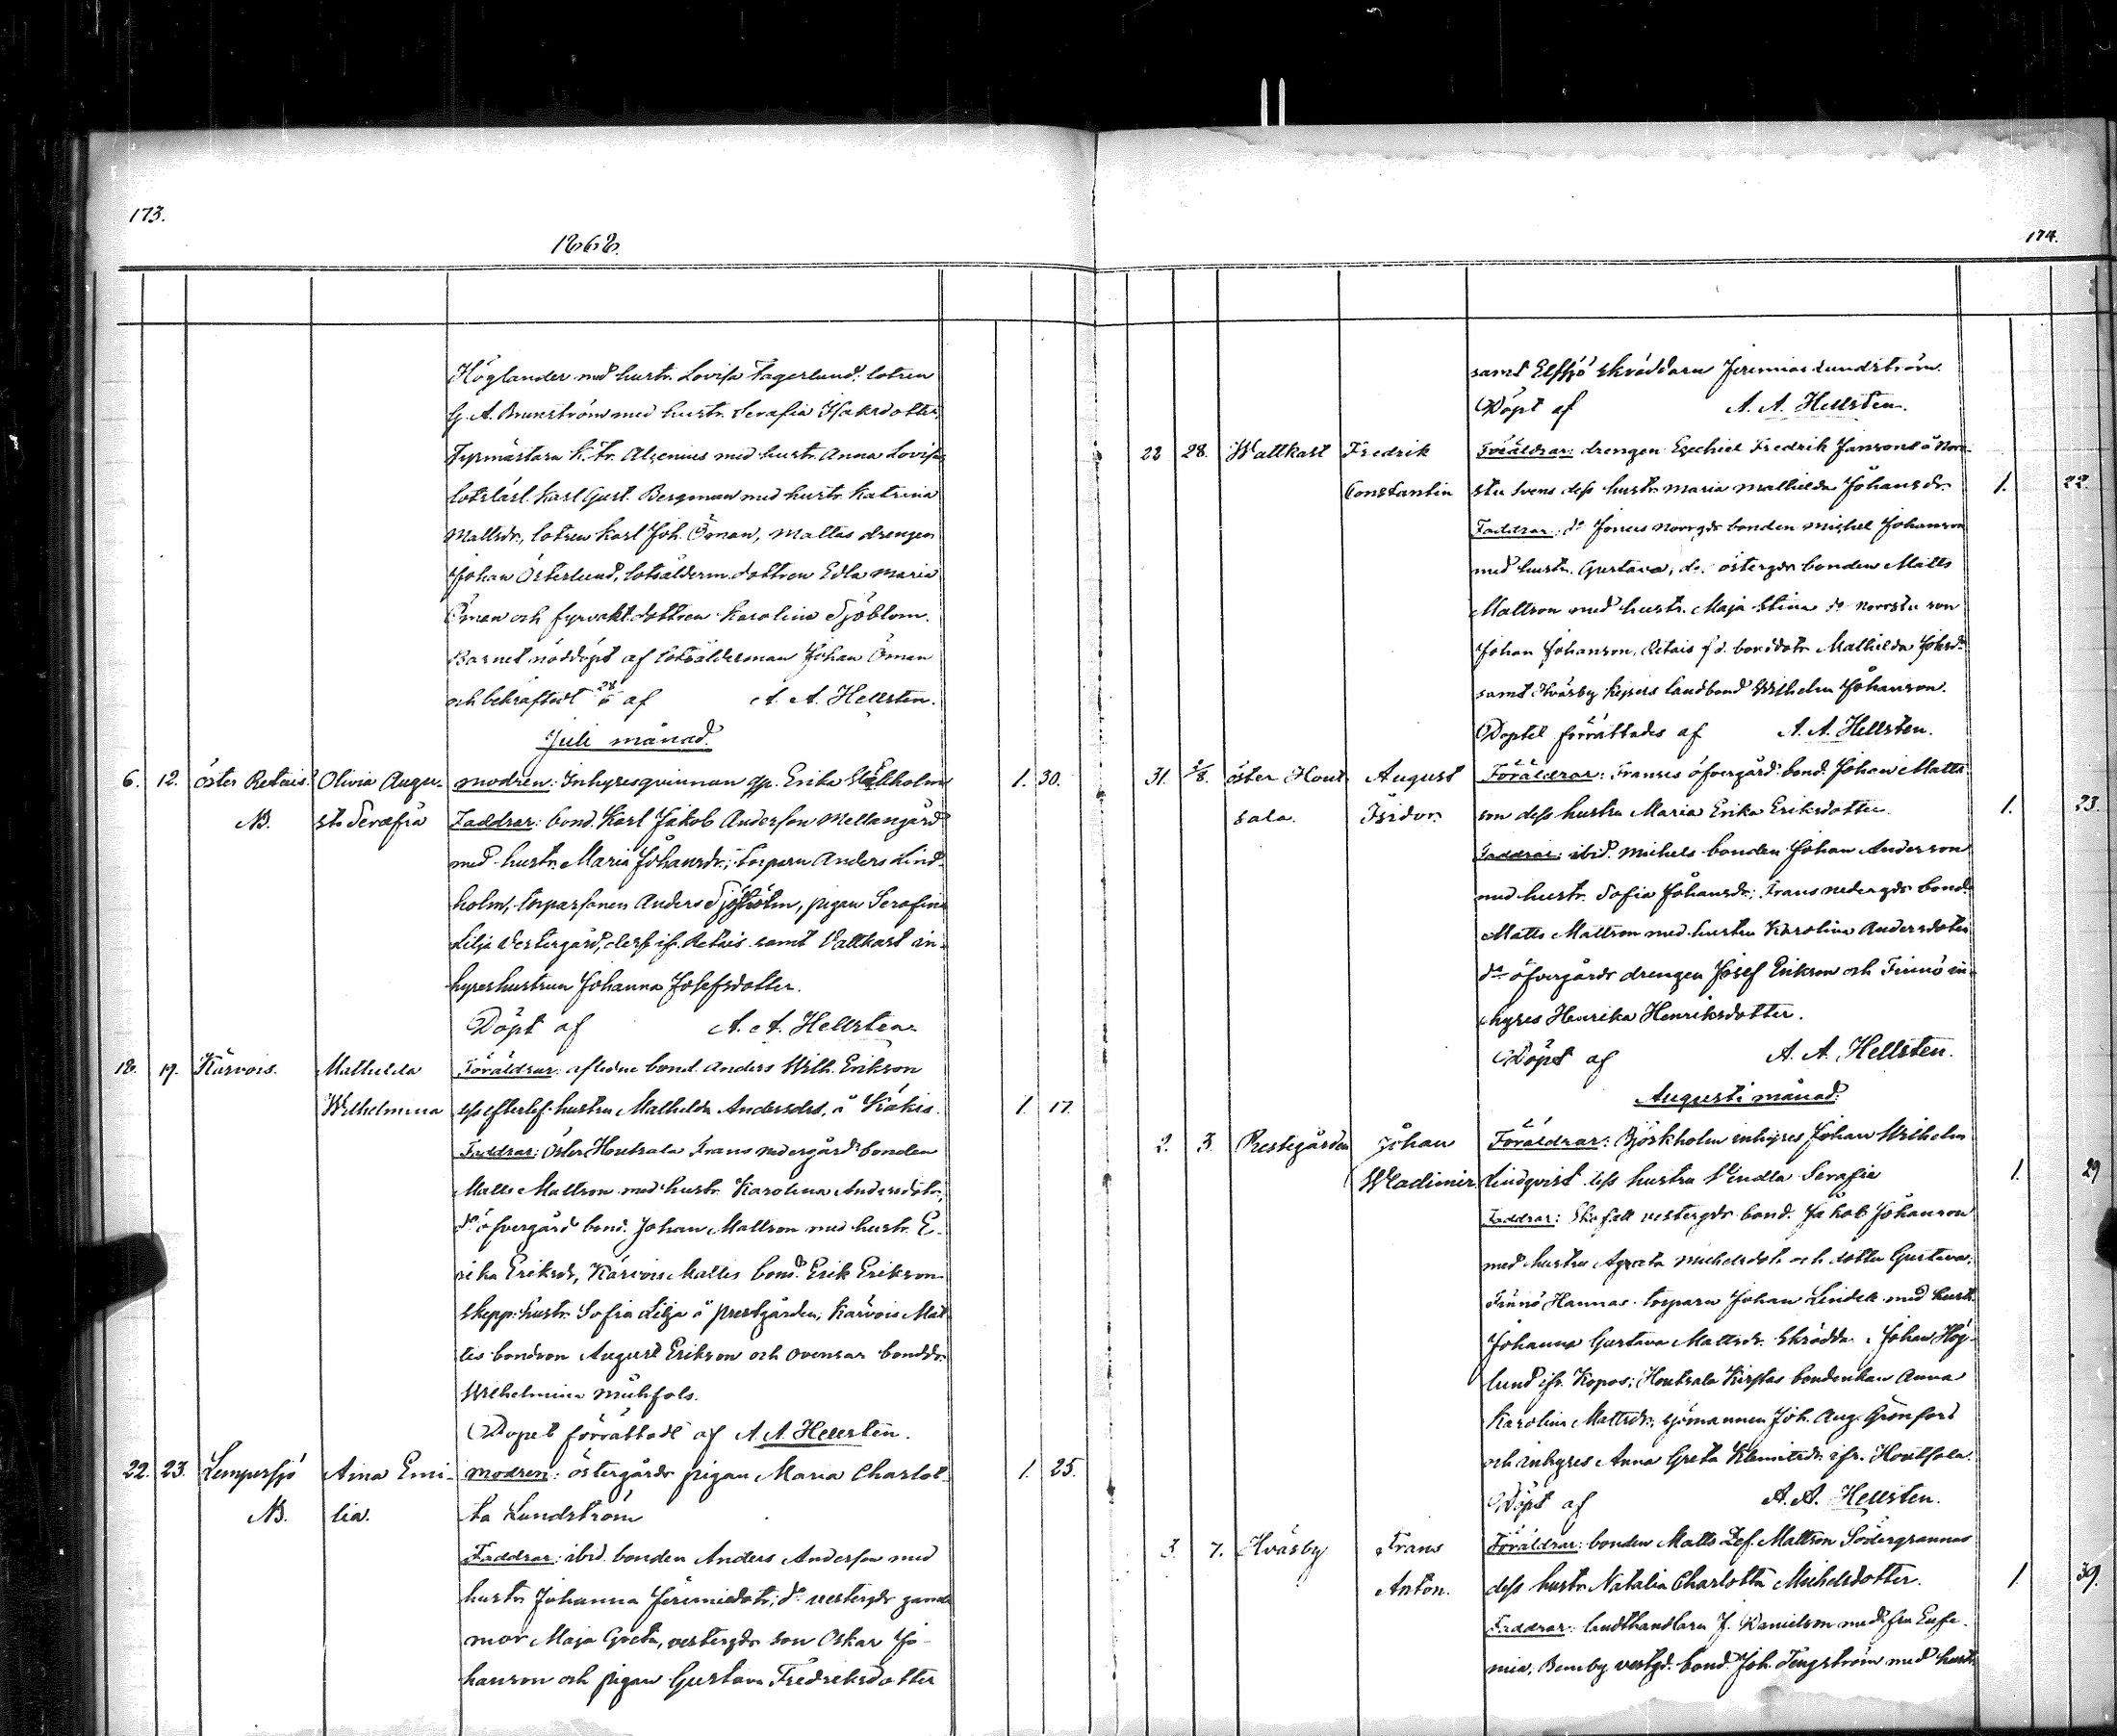 173.
1868.
Höglander med hustr. Lovisa Fagerlund. lotsen
G. A. Brunström med hustr. Serafia Isaksdotter,
Fyrmästare K. Fr. Alcenius med hustr. Anna Lovisa,
lotslärl. Karl Gust. Bergman med hustr. Katrina
Mattsdr., lotsen Karl Joh. Öman, Mattas drengen
Johan Österlund, lotsålderm. dottren Edla Maria
Öman och fyrvakt. dottren Karolina Sjöblom.
Barnet nöddöpt af lotsålderman Johan Öman
och bekräftadt af A. A. Hellsten.
Juli månad.
6. 12. öster Retais Olivia Augu- modren: Inhyresqvinnan Erika 1. 30.
NB. sta Serafia Faddrar: bond. Karl Jakob Anderson Mellangård
med hustr. Maria Johansdr., torparn Anders Lind-
holm, torparsonen Anders Sjöholm, pigan Serafina
Lilja Vestergård, ifr. Retais samt Vattkast in-
hyreshustrun Johanna Josefsdotter.
Döpt af A. A. Hellsten.
18. 19. Kärvois. Mathilda Föräldrar: aflidne bond. Anders Wilh. Erikson
Wilhelmina efterlef. hustru Mathilda Andersdot. å Kräkis. 1. 17.
Faddrar: Öster Houtsala Frans nedergård bonden
Matts Mattson med hustr. Karolina Andersdotr.,
do öfvergård bond. Johan Mattson med hustr. E-
rika Eriksdr, Kärvois Mattis bond. Erik Erikson
skepp. hustr. Sofia Lilja å prestgården, Kärvois Mat-
tis bondson August Erikson och Ovensar bonddr.
Wilhelmina
Dopet förrättadt af A. A. Hellsten.
22. 23. Lempersjö Aina Emi- modren: östergårds pigan Maria Charlot- 1. 25.
NB. lia. ta Lundström
Faddrar: ibid. bonden Anders Anderson med
hustr. Johanna Jeremiedotr, do vestergds gamla
mor Maja Greta, vestergds son Oskar Jo-
hanson och pigan Gustava Fredriksdotter
174.
samt Elfsjö skräddarn Jeremias Lundström.
Döpt af A. A. Hellsten.
22 28. Wattkast Fredrik Föräldrar: drengen Ezechiel Fredrik Janson å Norr-
Constantin stu Svens dess hustr. Maria Mathilda Johansdr. 1. 22.
Faddrar: do Jöncis Norrgds bonden Michel Johanson
med hustr. Gustava, do östergds bonden Matts
Mattson med hustr. Maja Stina do Norrstu son
Johan Johanson, Retais bonddotr Mathilda
samt Hväsby landbond Wilhelm Johanson.
Doptet förrättades af A. A. Hellsten.
31. 2/8. öster Hout- August Föräldrar: Franses öfvergård bond. Johan Matts-
sala. Isidor. son dess hustru Maria Erika Eriksdotter. 1. 23.
Faddrar: ibid. Michels bonden Johan Anderson
med hustr. Sofia Johansdr., Frans nedergds bond.
Matts Mattson med hustru Karolina Andersdoter
do öfvergårds drengen Josef Erikson och Finnö in-
hyres Henrika Henriksdotter.
Döpt af A. A. Hellsten.
Augusti månad.
2. 3. Prestegården Johan Föräldrar: Björkholm inhyses Johan Wilhelm
Wladimir Lindqvist dess hustru Vendla Serafia 1. 29
Faddrar: vestergds bond. Jakob Johanson
med hustru Agneta Michelsdot. och dotter Gustava,
Finnö Hannas torparn Johan Lindek med hust.
Johanna Gustava Mattsdr. Skrädd. Johan Hög-
lund ifr. Kopos; Houtsala Kirstas bondenkan Anna
Karolina Mattsdr, sjömannen Joh. Aug. Grönfors
och inhyses Anna Greta Klemetsdr ifr. Houtsala.
Döpt af A. A. Hellsten.
3. 7. Hväsby Frans Föräldrar: bonden Matts Zef. Mattson Södergrannas
Anton. dess hustr. Natalia Charlotta Michelsdotter. 1. 39.
Faddrar: landthandlarn J. Danielson med fru Eufe-
mia, Benby vestgd. bond. Joh. Tengström med hustr.